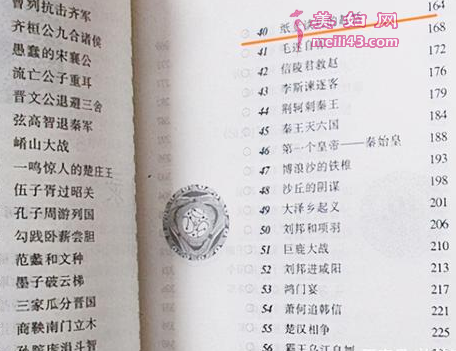 曹刿抗击齐军
齐桓公九合诸侯
愚蠢的宋襄公
流亡公子重耳
晋文公退避三舍
弦高智退秦军
崤山大战
一鸣惊人的楚庄王
伍子胥过昭关
孔子周游列国
勾践卧薪尝胆
范蠡和文种
墨子破云梯
三家瓜分晋国
商鞅南门立木
孙膑庞涓斗智
164
40 纸上谈兵的赵括 168
41 毛遂自荐 172
42 信陵君救赵 176
43 李斯谏逐客 179
44 荆轲刺秦王 182
45 秦王灭六国 184
46 第一个皇帝——秦始皇 188
47 博浪沙的铁椎 193
48 沙丘的阴谋 198
49 大泽乡起义 201
50 刘邦和项羽 206
51 巨鹿大战 210
52 刘邦进咸阳 213
53 鸿门宴 217
54 萧何追韩信 221
55 楚汉相争 225
56 霸王乌江自刎
美妇网
meili43.com